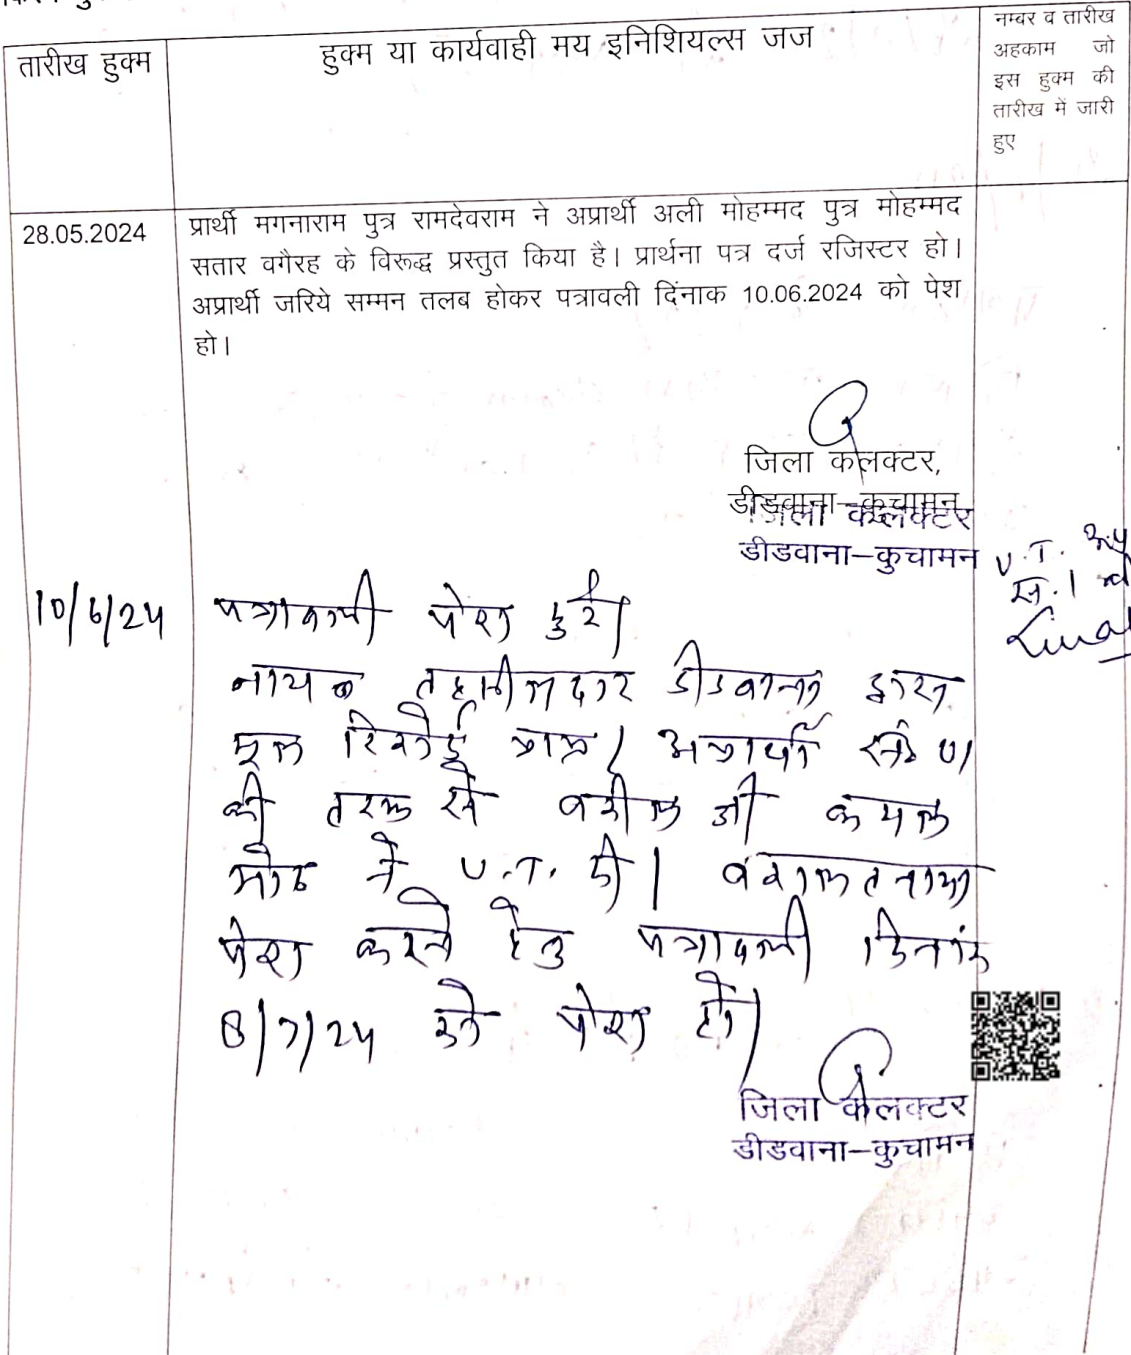 तारीख हुक्म
हुक्म या कार्यवाही मय इनिशियल्स जज
नम्बर व तारीख
अहकाम जो
इस हुक्म की
तारीख में जारी
हुए
28.05.2024
प्रार्थी मगनाराम पुत्र रामदेवराम ने अप्रार्थी अली मोहम्मद पुत्र मोहम्मद
सतार वगैरह के विरूद्ध प्रस्तुत किया है। प्रार्थना पत्र दर्ज रजिस्टर हो।
अप्रार्थी जरिये सम्मन तलब होकर पत्रावली दिंनाक 10.06.2024 को पेश
हो।
जिला कलक्टर,
डीडवाना–कुचामन
जिला कलक्टर
डीडवाना–कुचामन
U.T.
10/6/24
पत्रावली पेश हुई।
नायब तहसीलदार डीडवाना द्वारा
मूल रिकोर्ड प्राप्त। अप्रार्थी
की तरफ से वकील श्री कमल
ने U.T. दी। वकालतनामा
पेश करने हेतु पत्रावली दिनांक
8/7/24 को पेश हो।
जिला कलक्टर
डीडवाना–कुचामन